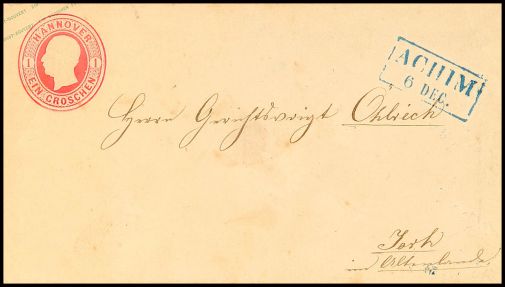 HANNOVER
1 1
EIN GROSCHEN
ACHIM
6 DEC.
Herrn Gerichtsvoigt Ohlrich
Jork
im Altenlande